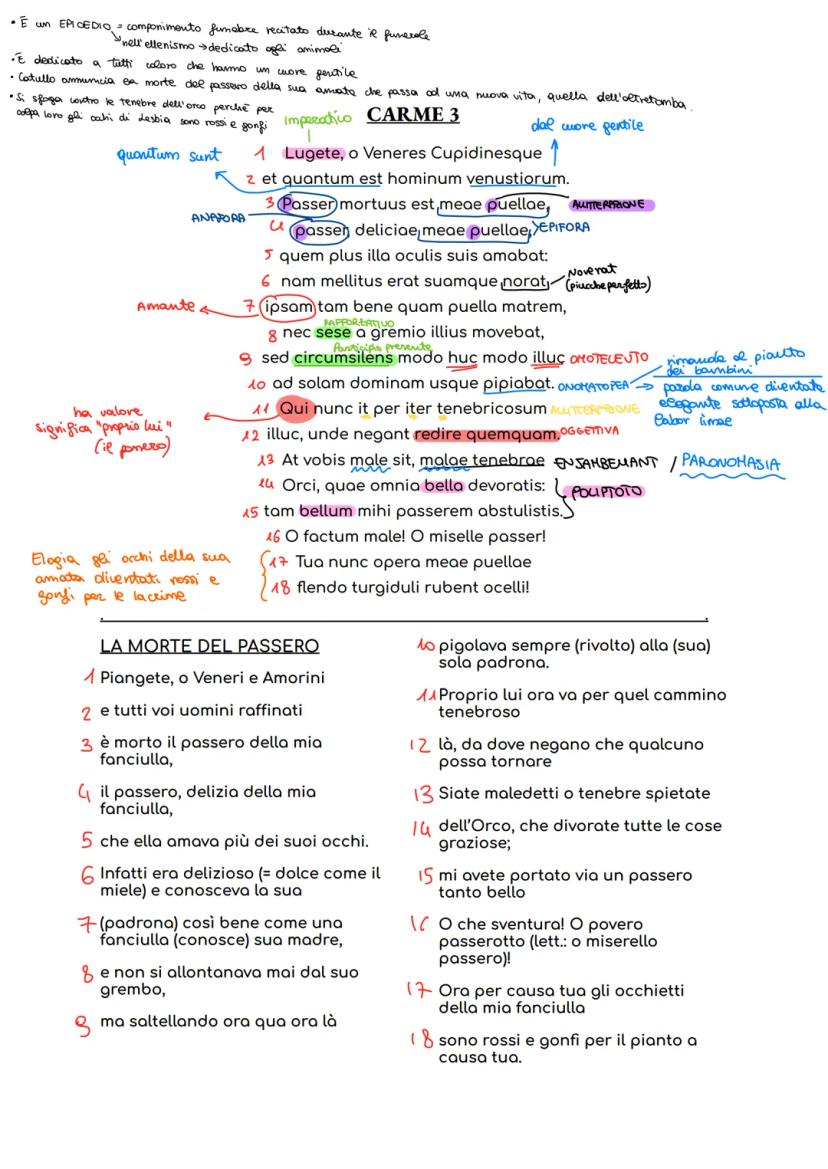 • È un EPICEDIO = componimento funebre recitato durante il funerale
nell'ellenismo → dedicato agli animali
• È dedicato a tutti coloro che hanno un cuore gentile
• Catullo annuncia la morte del passero della sua amata che passa ad una nuova vita, quella dell'oltretomba.
• Si sfoga contro le tenebre dell'orco perché per
colpa loro gli occhi di Lesbia sono rossi e gonfi
CARME 3
Imperativo
dal cuore gentile
quantum sunt
1 Lugete, o Veneres Cupidinesque
2 et quantum est hominum venustiorum.
3 Passer mortuus est meae puellae, ALLITTERAZIONE
ANAFORA
4 passer, deliciae meae puellae, EPIFORA
5 quem plus illa oculis suis amabat:
6 nam mellitus erat suamque norat, Noverat
(piuccheperfetto)
Amante
7 ipsam tam bene quam puella matrem,
RAFFORZATIVO
8 nec sese a gremio illius movebat,
Participio presente
9 sed circumsilens modo huc modo illuc OMOTELEUTO
10 ad solam dominam usque pipiabat. ONOMATOPEA →
rimanda al pianto
dei bambini
parola comune diventata
elegante sottoposta alla
labor limae
11 Qui nunc it per iter tenebricosum ALLITTERAZIONE
ha valore
significa "proprio lui"
(il passero)
12 illuc, unde negant redire quemquam. OGGETTIVA
13 At vobis male sit, malae tenebrae ENJAMBEMANT / PARONOMASIA
14 Orci, quae omnia bella devoratis:
POLIPTOTO
15 tam bellum mihi passerem abstulistis.
16 O factum male! O miselle passer!
17 Tua nunc opera meae puellae
18 flendo turgiduli rubent ocelli!
Elogia gli occhi della sua
amata diventati rossi e
gonfi per le lacrime
LA MORTE DEL PASSERO
1 Piangete, o Veneri e Amorini
2 e tutti voi uomini raffinati
3 è morto il passero della mia
fanciulla,
4 il passero, delizia della mia
fanciulla,
5 che ella amava più dei suoi occhi.
6 Infatti era delizioso (= dolce come il
miele) e conosceva la sua
7 (padrona) così bene come una
fanciulla (conosce) sua madre,
8 e non si allontanava mai dal suo
grembo,
9 ma saltellando ora qua ora là
10 pigolava sempre (rivolto) alla (sua)
sola padrona.
11 Proprio lui ora va per quel cammino
tenebroso
12 là, da dove negano che qualcuno
possa tornare
13 Siate maledetti o tenebre spietate
14 dell'Orco, che divorate tutte le cose
graziose;
15 mi avete portato via un passero
tanto bello
16 O che sventura! O povero
passerotto (lett.: o miserello
passero)!
17 Ora per causa tua gli occhietti
della mia fanciulla
18 sono rossi e gonfi per il pianto a
causa tua.